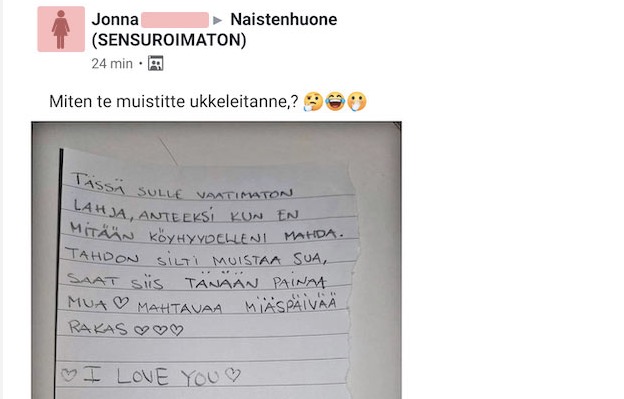 Jonna ▸ Naistenhuone
(SENSUROIMATON)
24 min ·
Miten te muistitte ukkeleitanne,? 🤔😂🤭
TÄSSÄ SULLE VAATIMATON
LAHJA, ANTEEKSI KUN EN
MITÄÄN KÖYHYYDELLENI MAHDA.
TAHDON SILTI MUISTAA SUA,
SAAT SIIS TÄNÄÄN PAINAA
MUA ♡ MAHTAVAA MIÄSPÄIVÄÄ
RAKAS ♡♡♡
♡ I LOVE YOU ♡